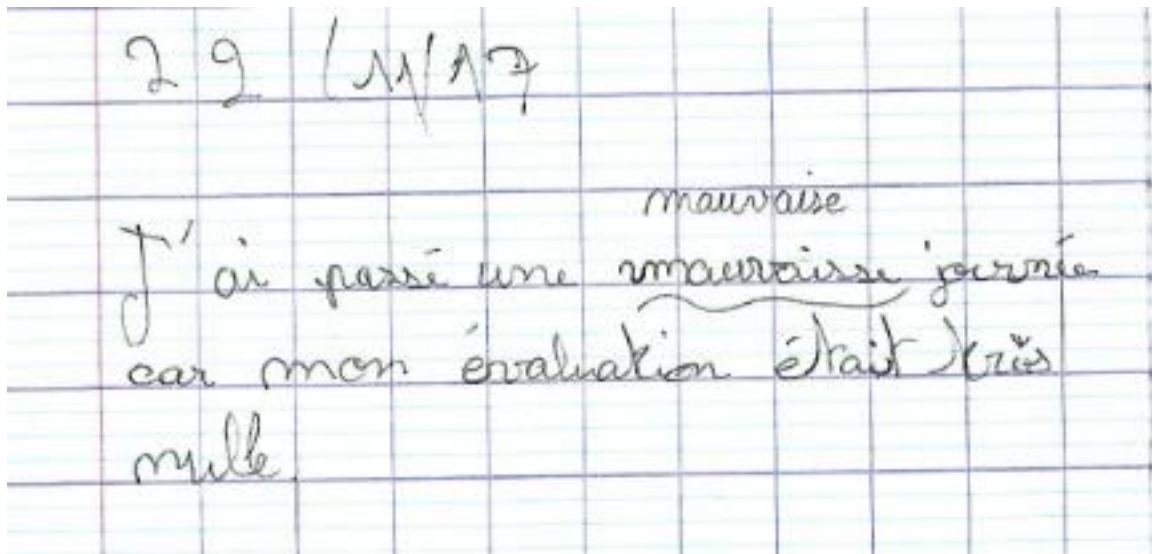 29/11/17
mauvaise
J'ai passé une mauvaisse journée
car mon évaluation était très
nulle.